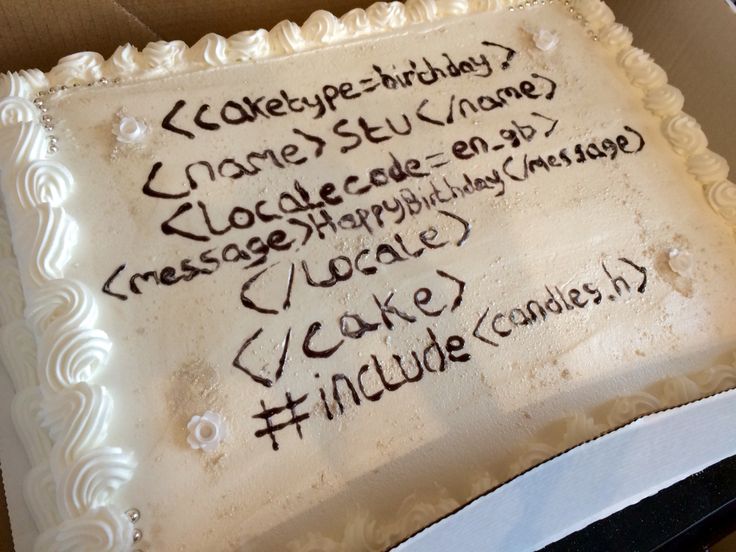 <caketype=birthday>
<name>Stu</name>
<localecode=en_gb>
<message>HappyBirthday</message>
</locale>
</cake>
#include<candles.h>